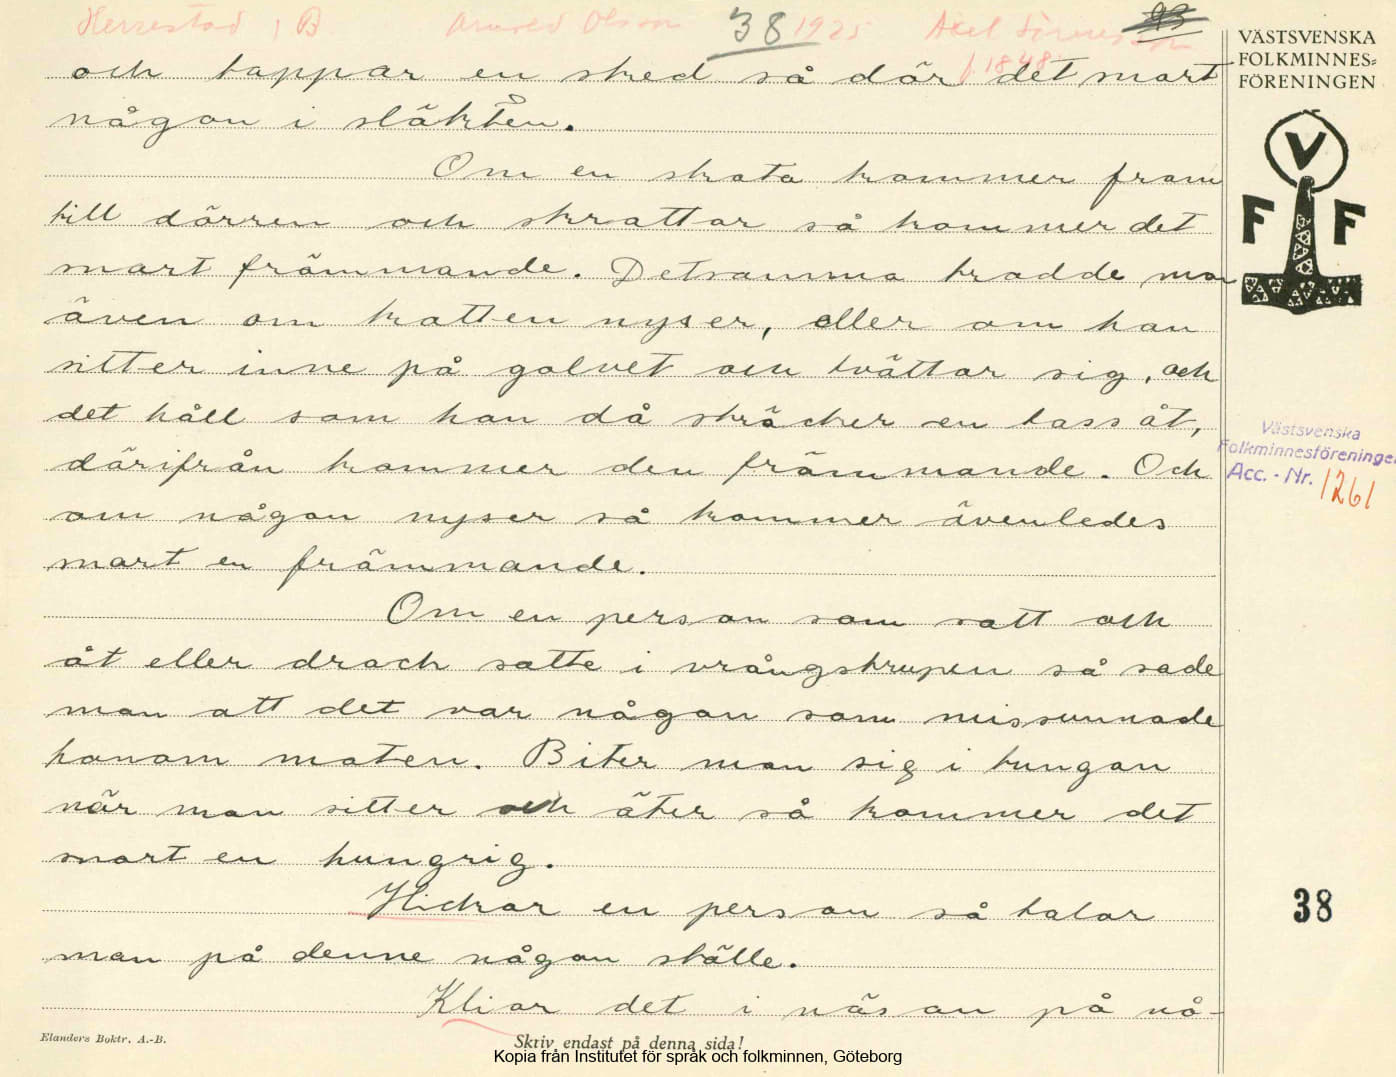 Herrestad i B Arnold Olson 38 1925 Axel
f. 1848
VÄSTSVENSKA
FOLKMINNES=
FÖRENINGEN
och tappar en sked så dör det snart
någon i släkten.
Om en skata kommer fram
till dörren och skrattar så kommer det
snart främmande. Detsamma trodde man
även om katten nyser, eller om han
sitter inne på golvet och tvättar sig, och
det håll som han då sträcker en tass åt,
därifrån kommer den främmande. Och
om någon nyser så kommer ävenledes
snart en främmande.
Om en person som satt och
åt eller drack satte i vrångstrupen så sade
man att det var någon som missunnade
honom maten. Biter man sig i tungan
när man sitter och äter så kommer det
snart en hungrig.
Hickar en person så talar
man på denne någon ställe.
Kliar det i näsan på nå-
V
F F
Västsvenska
Folkminnesföreningen
Acc. - Nr. 1261
38
Elanders Boktr. A.-B.
Skriv endast på denna sida!
Kopia från Institutet för språk och folkminnen, Göteborg